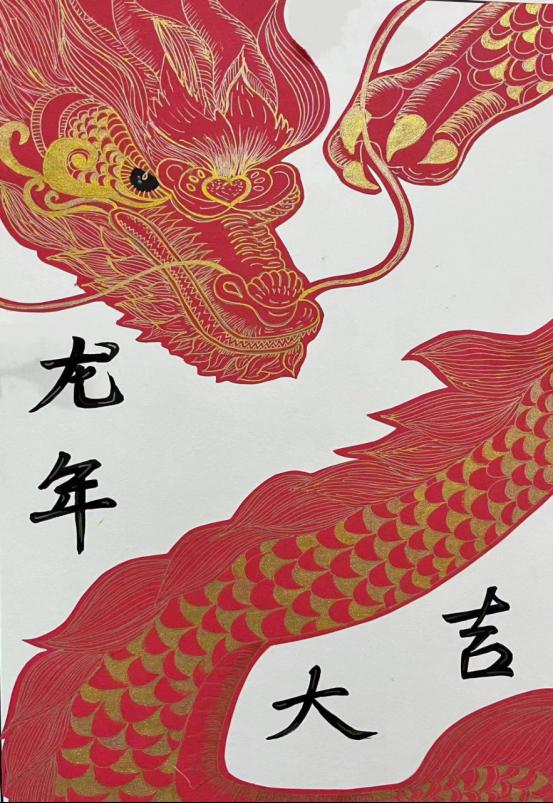 龙年
大吉